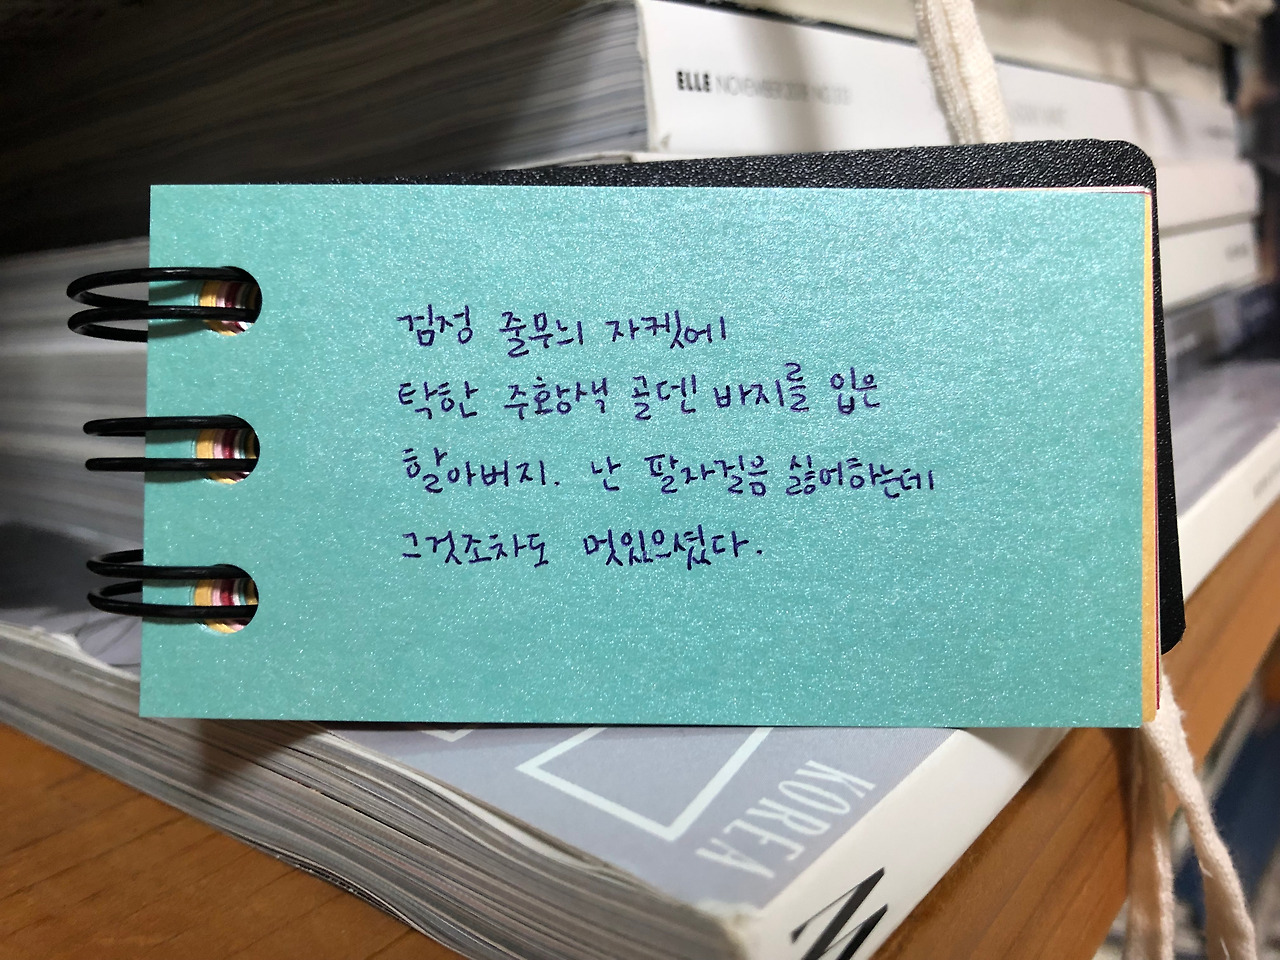 ELLE NOVEMBER
검정 줄무늬 자켓에
탁한 주황색 골덴 바지를 입은
할아버지. 난 팔자걸음 싫어하는데
그것조차도 멋있으셨다.
KOREA